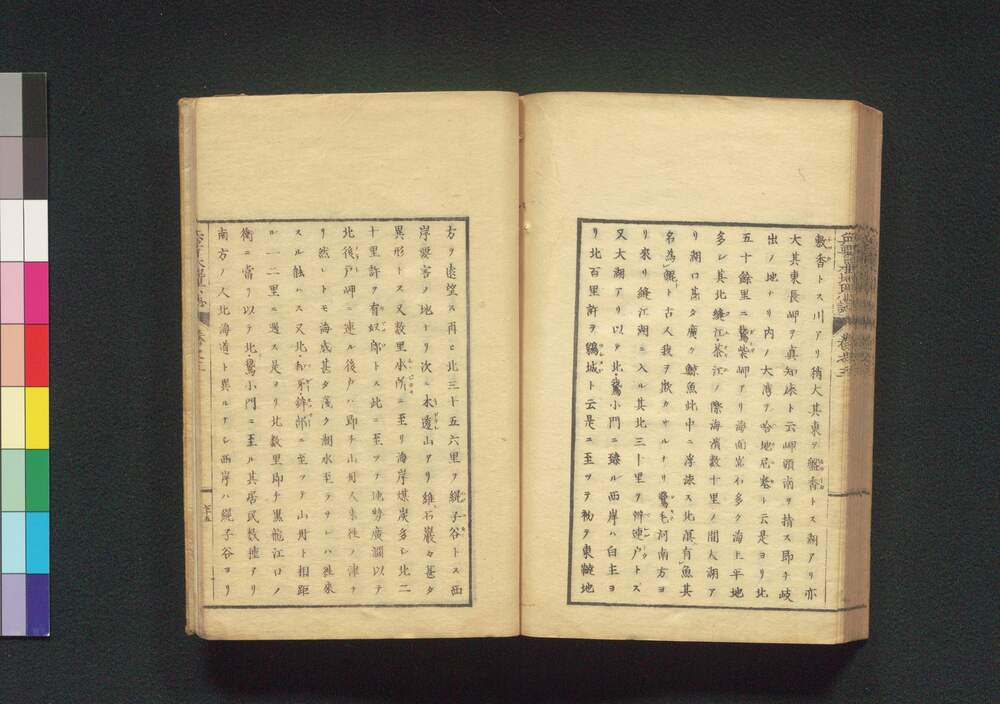 敷香トス川アリ稍大其東ヲ鵞香トス湖アリ亦
大其東長岬ヲ真知床ト云岬頭南ヲ指ス即チ岐
出ノ地ナリ内ノ大湾ヲ哈地尼悉ト云是ヨリ北
五十餘里ニ鵞柴岬アリ海面岩石多ク海上平地
多シ其北縫江茶江ノ際海濱數十里ノ間大湖ア
リ湖口甚タ廣ク鯨魚此中ニ浮泳ス北溟有魚其
名為鯤ト古人我ヲ欺カサルナリ鵞毛河南方ヨ
リ來リ縫江湖ニ入ル其北三十里ヲ辨連戸トス
又大湖アリ以テ北鵞小門ニ臻ル西岸ハ白主ヨ
リ北百里許ヲ鵜城ト云是ニ至ツテ初テ東韃地
方ヲ遠望ス再ヒ北三十五六里ヲ縄子谷トス西
岸認客ノ地ナリ次ニ木透山アリ雖石巖々甚タ
異形トス又數里ニ至リ海岸煤炭多シ北二
十里許ヲ有奴郎トス此ニ至ツテ地勢廣濶以テ
北後戸岬ニ連ル後戸ハ即チ山丹人來往ノ津ナ
リ然レトモ海底甚タ淺ク潮水至ラサレハ往來
スル能ハス又北鉾郎ニ至ツテ山丹ト相距
ル一二里ニ過ス是ヨリ北數里即チ黒龍江口ノ
衝ニ當リ以テ北鵞小門ニ至ル其居民數種アリ
南方ノ人北海道ト異ルナシ西岸ハ縄子谷ヨリ